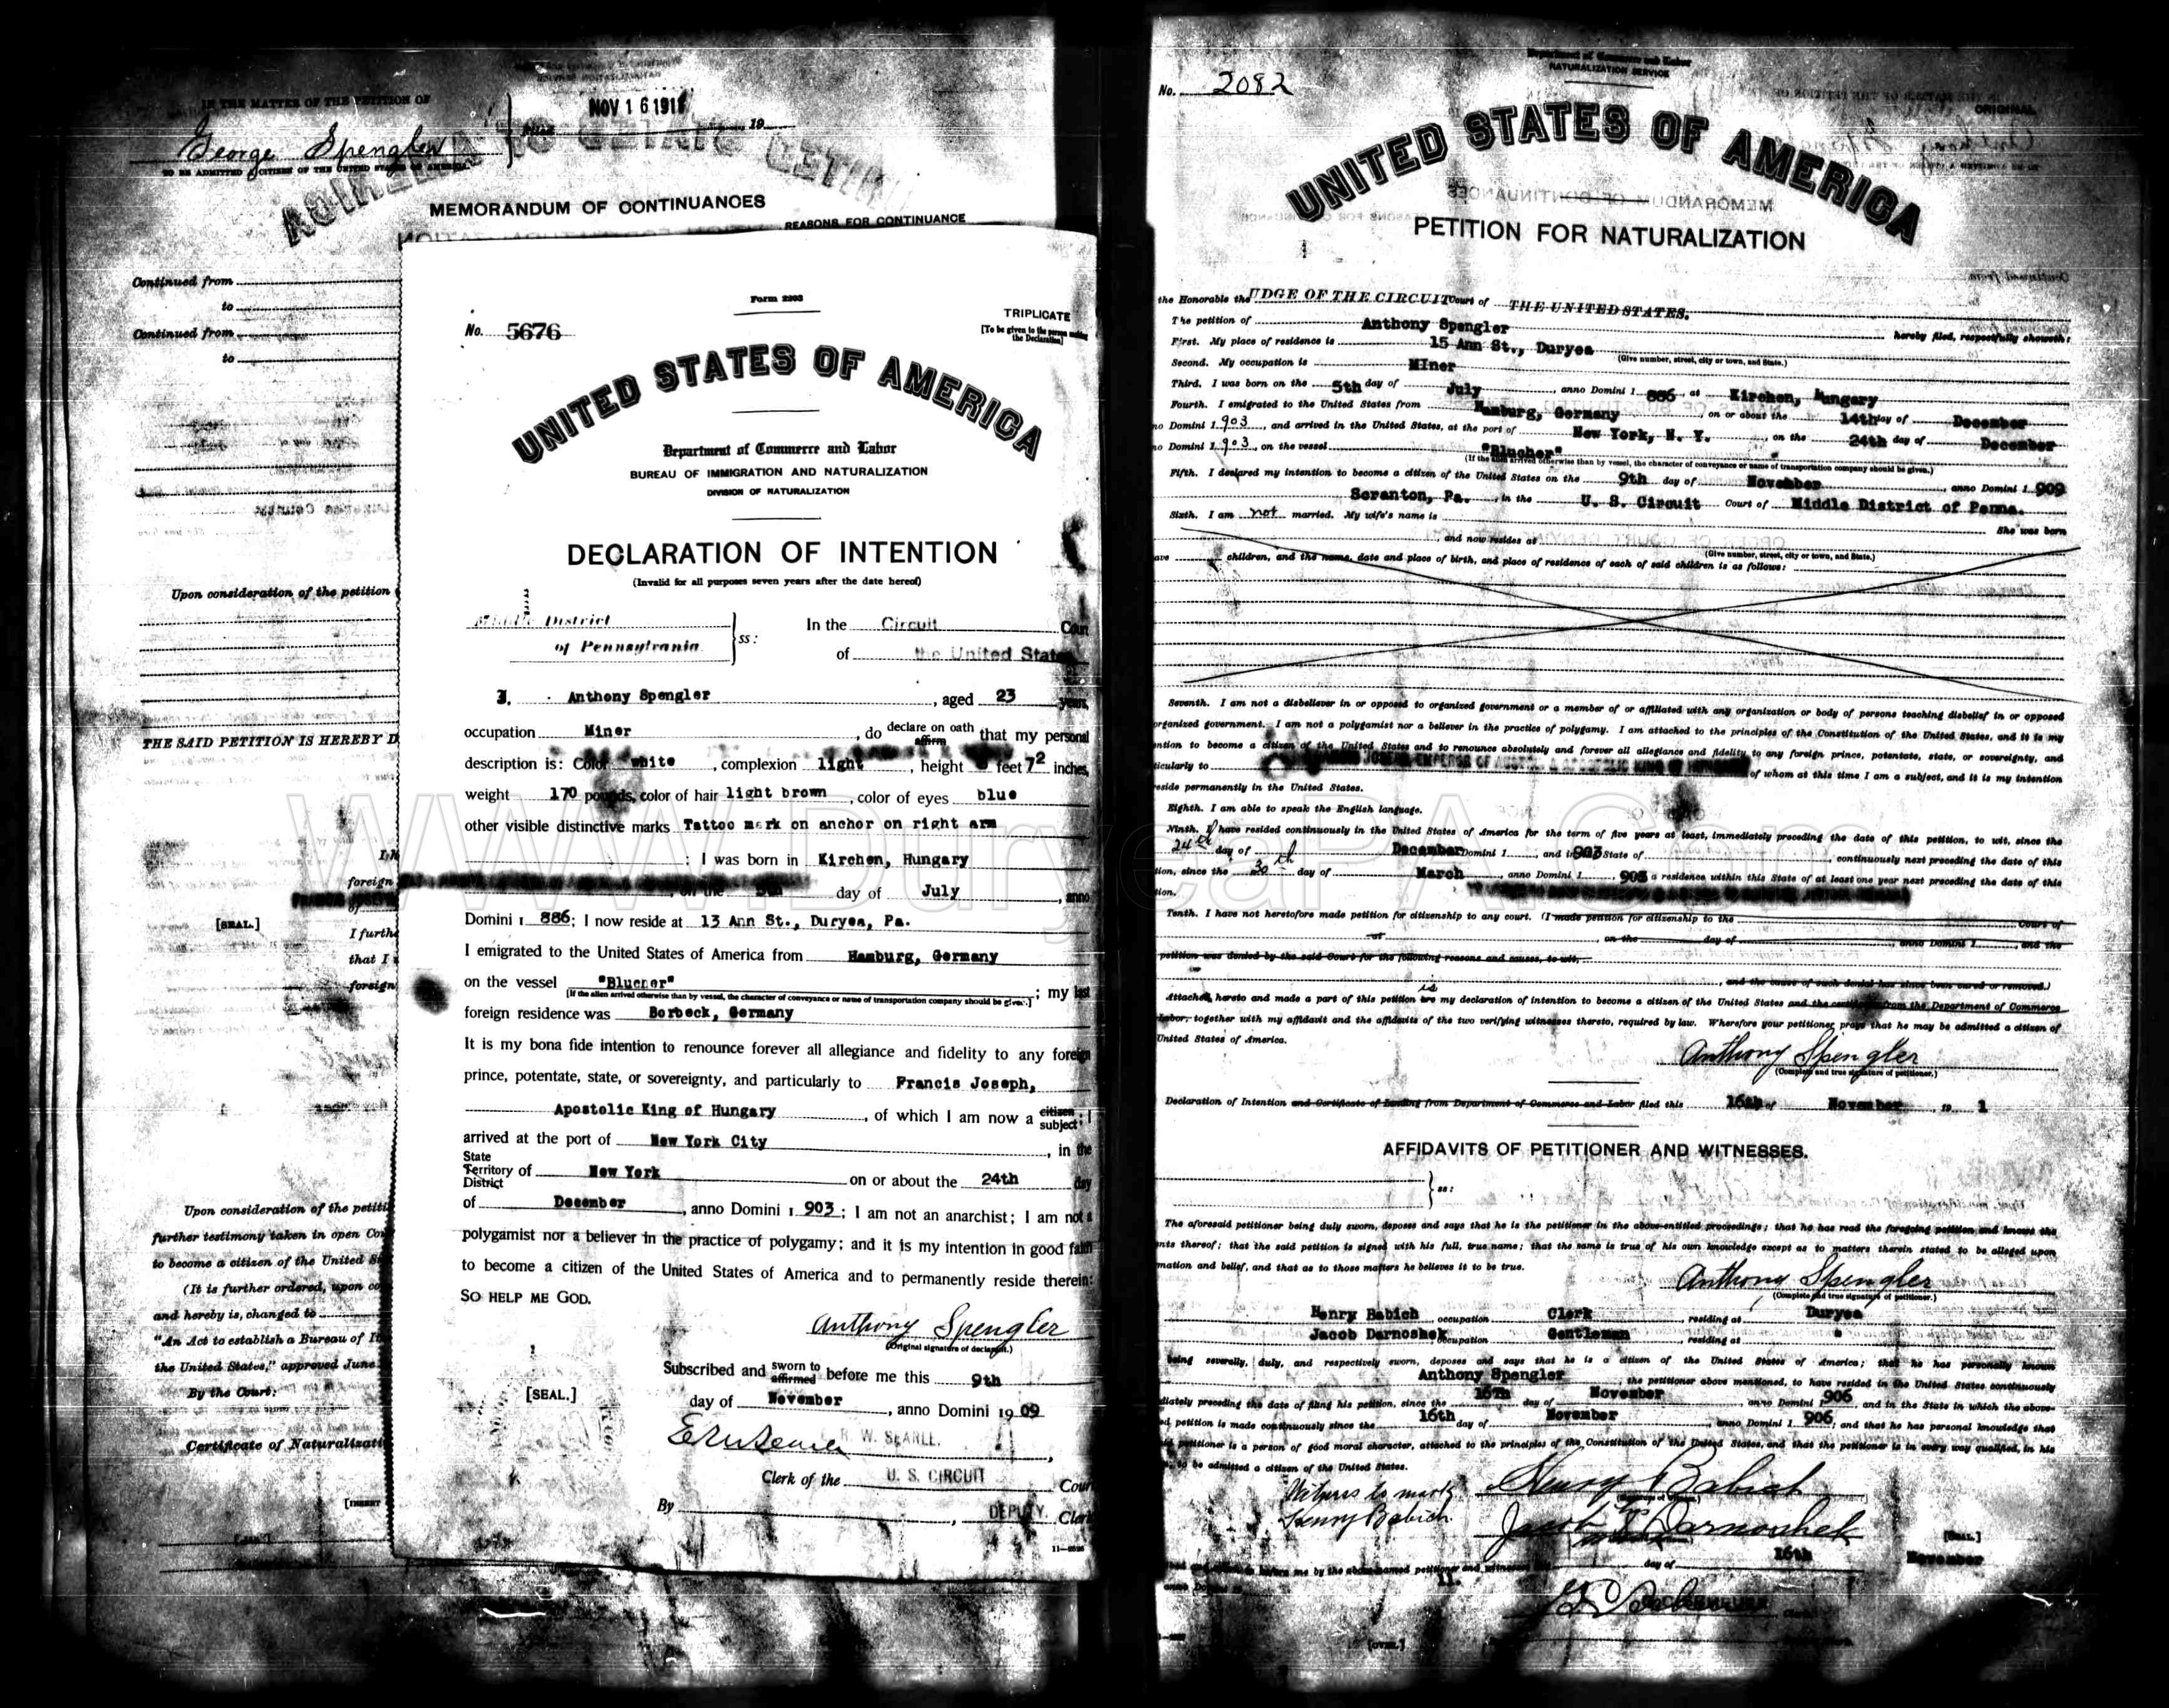 IN THE MATTER OF THE PETITION OF
George Spengler
TO BE ADMITTED A CITIZEN OF THE UNITED STATES OF AMERICA.
NOV 16 1911
19
MEMORANDUM OF CONTINUANCES
REASONS FOR CONTINUANCE
Continued from
to
Continued from
to
Upon consideration of the petition
THE SAID PETITION IS HEREBY D
foreign
[SEAL.]
of
I furthe
that I
foreign
Upon consideration of the petiti
further testimony taken in open Co
to become a citizen of the United S
(It is further ordered, upon co
and hereby is, changed to
"An Act to establish a Bureau of I
the United States," approved June
By the Court:
Certificate of Naturalizati
Form 2203
TRIPLICATE
No. 5676
[To be given to the person making
the Declaration]
UNITED STATES OF AMERICA
Department of Commerce and Labor
BUREAU OF IMMIGRATION AND NATURALIZATION
DIVISION OF NATURALIZATION
DECLARATION OF INTENTION
(Invalid for all purposes seven years after the date hereof)
Middle District
of Pennsylvania
ss:
In the Circuit Cour
of the United State
I, Anthony Spengler, aged 23 years,
occupation Miner, do declare on oath affirm that my personal
description is: Color white, complexion light, height feet 7 2 inches,
weight 170 pounds, color of hair light brown, color of eyes blue
other visible distinctive marks Tattoo mark on anchor on right arm
; I was born in Kirchen, Hungary
on the 5th day of July, anno
Domini 1 886; I now reside at 13 Ann St., Duryea, Pa.
I emigrated to the United States of America from Hamburg, Germany
on the vessel "Blucher"; my last
[If the alien arrived otherwise than by vessel, the character of conveyance or name of transportation company should be given.]
foreign residence was Borbeck, Germany
It is my bona fide intention to renounce forever all allegiance and fidelity to any foreign
prince, potentate, state, or sovereignty, and particularly to Francis Joseph,
Apostolic King of Hungary, of which I am now a citizen subject; I
arrived at the port of New York City, in the
State Territory District of New York on or about the 24th day
of December, anno Domini 1 903; I am not an anarchist; I am not a
polygamist nor a believer in the practice of polygamy; and it is my intention in good faith
to become a citizen of the United States of America and to permanently reside therein:
SO HELP ME GOD.
Anthony Spengler
(Original signature of declarant.)
Subscribed and sworn to affirmed before me this 9th
[SEAL.]
day of November, anno Domini 19 09
R. W. SEARLE.
Clerk of the U. S. CIRCUIT Cour
By DEPUTY Clerk
Department of Commerce and Labor
NATURALIZATION SERVICE
No. 2082
ORIGINAL
UNITED STATES OF AMERICA
PETITION FOR NATURALIZATION
the Honorable the UDGE OF THE CIRCUIT Court of THE UNITED STATES.
The petition of Anthony Spengler hereby filed, respectfully showeth:
First. My place of residence is 15 Ann St., Duryea
(Give number, street, city or town, and State.)
Second. My occupation is MIner
Third. I was born on the 5th day of July, anno Domini 1 886, at Kirchen, Hungary
Fourth. I emigrated to the United States from Hamburg, Germany on or about the 14th day of December
no Domini 1 903, and arrived in the United States, at the port of New York, N. Y., on the 24th day of December
no Domini 1 903, on the vessel "Blucher"
(If the alien arrived otherwise than by vessel, the character of conveyance or name of transportation company should be given.)
Fifth. I declared my intention to become a citizen of the United States on the 9th day of November, anno Domini 1 909
Scranton, Pa., in the U. S. Circuit Court of Middle District of Penna.
Sixth. I am not married. My wife's name is
She was born
and now resides at
(Give number, street, city or town, and State.)
ave children, and the name, date and place of birth, and place of residence of each of said children is as follows:
Seventh. I am not a disbeliever in or opposed to organized government or a member of or affiliated with any organization or body of persons teaching disbelief in or opposed
organized government. I am not a polygamist nor a believer in the practice of polygamy. I am attached to the principles of the Constitution of the United States, and it is my
ntion to become a citizen of the United States and to renounce absolutely and forever all allegiance and fidelity to any foreign prince, potentate, state, or sovereignty, and
ticularly to JOSEPH, EMPEROR OF AUSTRIA & APOSTOLIC KING OF HUNGARY of whom at this time I am a subject, and it is my intention
reside permanently in the United States.
Eighth. I am able to speak the English language.
Ninth. I have resided continuously in the United States of America for the term of five years at least, immediately preceding the date of this petition, to wit, since the
24th day of December Domini 1 903, and in State of, continuously next preceding the date of this
tion, since the 30th day of March, anno Domini 1 903 a residence within this State of at least one year next preceding the date of this
tion.
Tenth. I have not heretofore made petition for citizenship to any court. (I made petition for citizenship to the Court of
at, on the day of, anno Domini 1, and the
petition was denied by the said Court for the following reasons and causes, to wit,
, and the cause of such denial has since been cured or removed.)
Attached hereto and made a part of this petition are is my declaration of intention to become a citizen of the United States and the certificate from the Department of Commerce
Labor, together with my affidavit and the affidavits of the two verifying witnesses thereto, required by law. Wherefore your petitioner prays that he may be admitted a citizen of
United States of America.
Anthony Spengler
(Complete and true signature of petitioner.)
Declaration of Intention and Certificate of Landing from Department of Commerce and Labor filed this 16th of November, 19 1
AFFIDAVITS OF PETITIONER AND WITNESSES.
ss:
The aforesaid petitioner being duly sworn, deposes and says that he is the petitioner in the above-entitled proceedings; that he has read the foregoing petition and knows the
nts thereof; that the said petition is signed with his full, true name; that the same is true of his own knowledge except as to matters therein stated to be alleged upon
mation and belief, and that as to those matters he believes it to be true.
Anthony Spengler
(Complete and true signature of petitioner.)
Henry Babich occupation Clerk, residing at Duryea
Jacob Darnoshek occupation Gentleman, residing at "
being severally, duly, and respectively sworn, deposes and says that he is a citizen of the United States of America; that he has personally known
Anthony Spengler, the petitioner above mentioned, to have resided in the United States continuously
diately preceding the date of filing his petition, since the 16th day of November, anno Domini 1 906, and in the State in which the above-
ed petition is made continuously since the 16th day of November, anno Domini 1 906; and that he has personal knowledge that
petitioner is a person of good moral character, attached to the principles of the Constitution of the United States, and that the petitioner is in every way qualified, in his
to be admitted a citizen of the United States.
Witness to mark
Henry Babich
Henry Babich
Jacob his Darnoshek
[SEAL.]
before me by the above-named petitioner and witnesses
16th day of November
anno Do 11.
[OVER.]
www.DuryeaPA.com